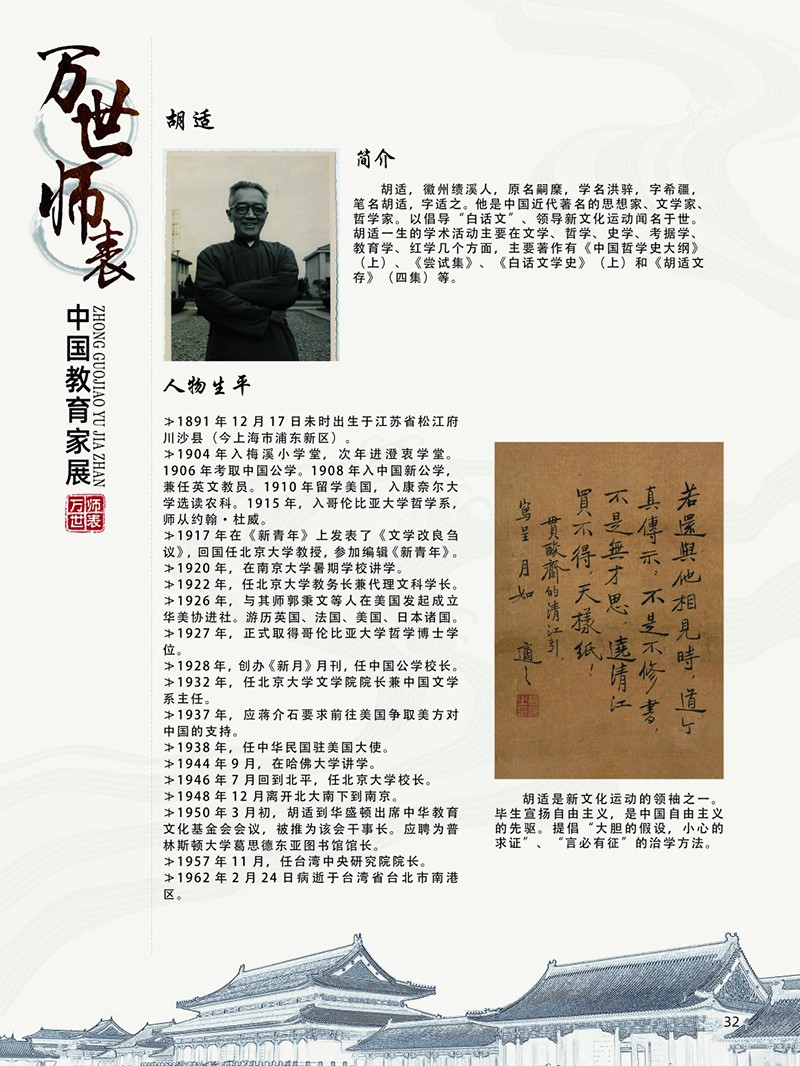 万世师表
中国教育家展
ZHONG GUOJIAO YU JIA ZHAN
万世师表
胡适
简介
胡适，徽州绩溪人，原名嗣穈，学名洪骍，字希疆，
笔名胡适，字适之。他是中国近代著名的思想家、文学家、
哲学家。以倡导“白话文”、领导新文化运动闻名于世。
胡适一生的学术活动主要在文学、哲学、史学、考据学、
教育学、红学几个方面，主要著作有《中国哲学史大纲》
（上）、《尝试集》、《白话文学史》（上）和《胡适文
存》（四集）等。
人物生平
≯1891 年 12 月 17 日未时出生于江苏省松江府
川沙县（今上海市浦东新区）。
≯1904 年入梅溪小学堂，次年进澄衷学堂。
1906 年考取中国公学。1908 年入中国新公学，
兼任英文教员。1910 年留学美国，入康奈尔大
学选读农科。1915 年，入哥伦比亚大学哲学系，
师从约翰·杜威。
≯1917 年在《新青年》上发表了《文学改良刍
议》，回国任北京大学教授，参加编辑《新青年》。
≯1920 年，在南京大学暑期学校讲学。
≯1922 年，任北京大学教务长兼代理文科学长。
≯1926 年，与其师郭秉文等人在美国发起成立
华美协进社。游历英国、法国、美国、日本诸国。
≯1927 年，正式取得哥伦比亚大学哲学博士学
位。
≯1928 年，创办《新月》月刊，任中国公学校长。
≯1932 年，任北京大学文学院院长兼中国文学
系主任。
≯1937 年，应蒋介石要求前往美国争取美方对
中国的支持。
≯1938 年，任中华民国驻美国大使。
≯1944 年 9 月，在哈佛大学讲学。
≯1946 年 7 月回到北平，任北京大学校长。
≯1948 年 12 月离开北大南下到南京。
≯1950 年 3 月初，胡适到华盛顿出席中华教育
文化基金会会议，被推为该会干事长。应聘为普
林斯顿大学葛思德东亚图书馆馆长。
≯1957 年 11 月，任台湾中央研究院院长。
≯1962 年 2 月 24 日病逝于台湾省台北市南港
区。
若還與他相見時，道个
真傳示：不是不修書，
不是無才思，遶清江
買不得，天樣紙！
貫酸齋的清江引，
寫呈月如 適之
胡适是新文化运动的领袖之一。
毕生宣扬自由主义，是中国自由主义
的先驱。提倡“大胆的假设，小心的
求证”、“言必有征”的治学方法。
32